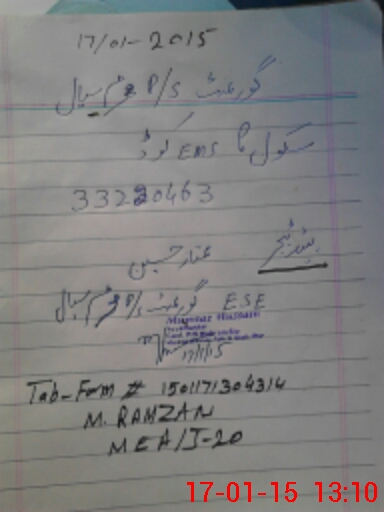 17/01-2015
گورنمنٹ P/S خرم سیال
سکول کا EMS کوڈ
33220463
ہیڈ ٹیچر
حسین
گورنمنٹ P/S خرم سیال ESE
Mumtaz Hussain
17/1/15
Tab-Form # 1501171304314
M. RAMZAN
MEA/J-20
17-01-15 13:10